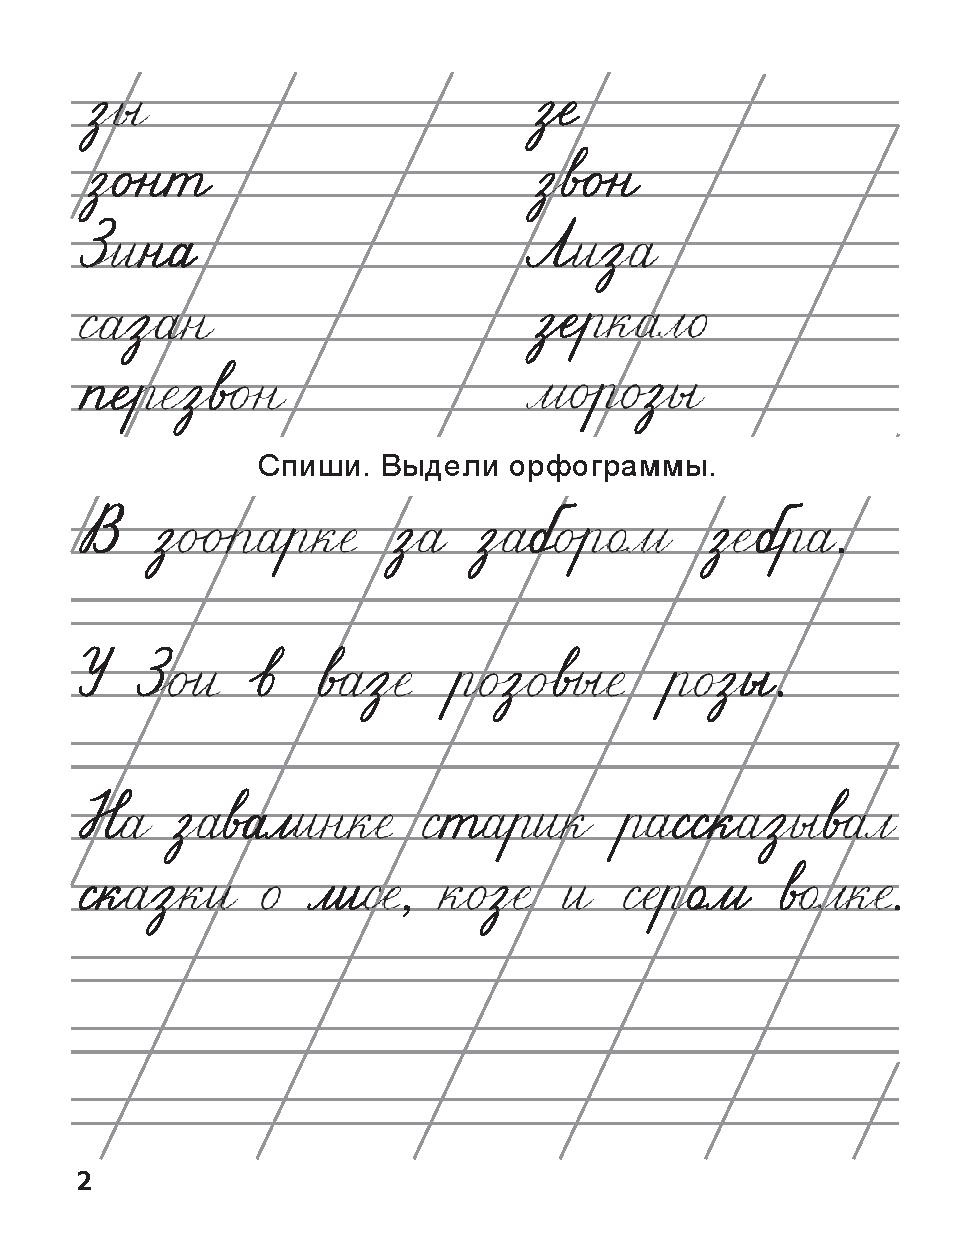 зы зе
зонт звон
Зина Лиза
сазан зеркало
перезвон морозы
Спиши. Выдели орфограммы.
В зоопарке за забором зебра.
У Зои в вазе розовые розы.
На завалинке старик рассказывал
сказки о лисе, козе и сером волке.
2